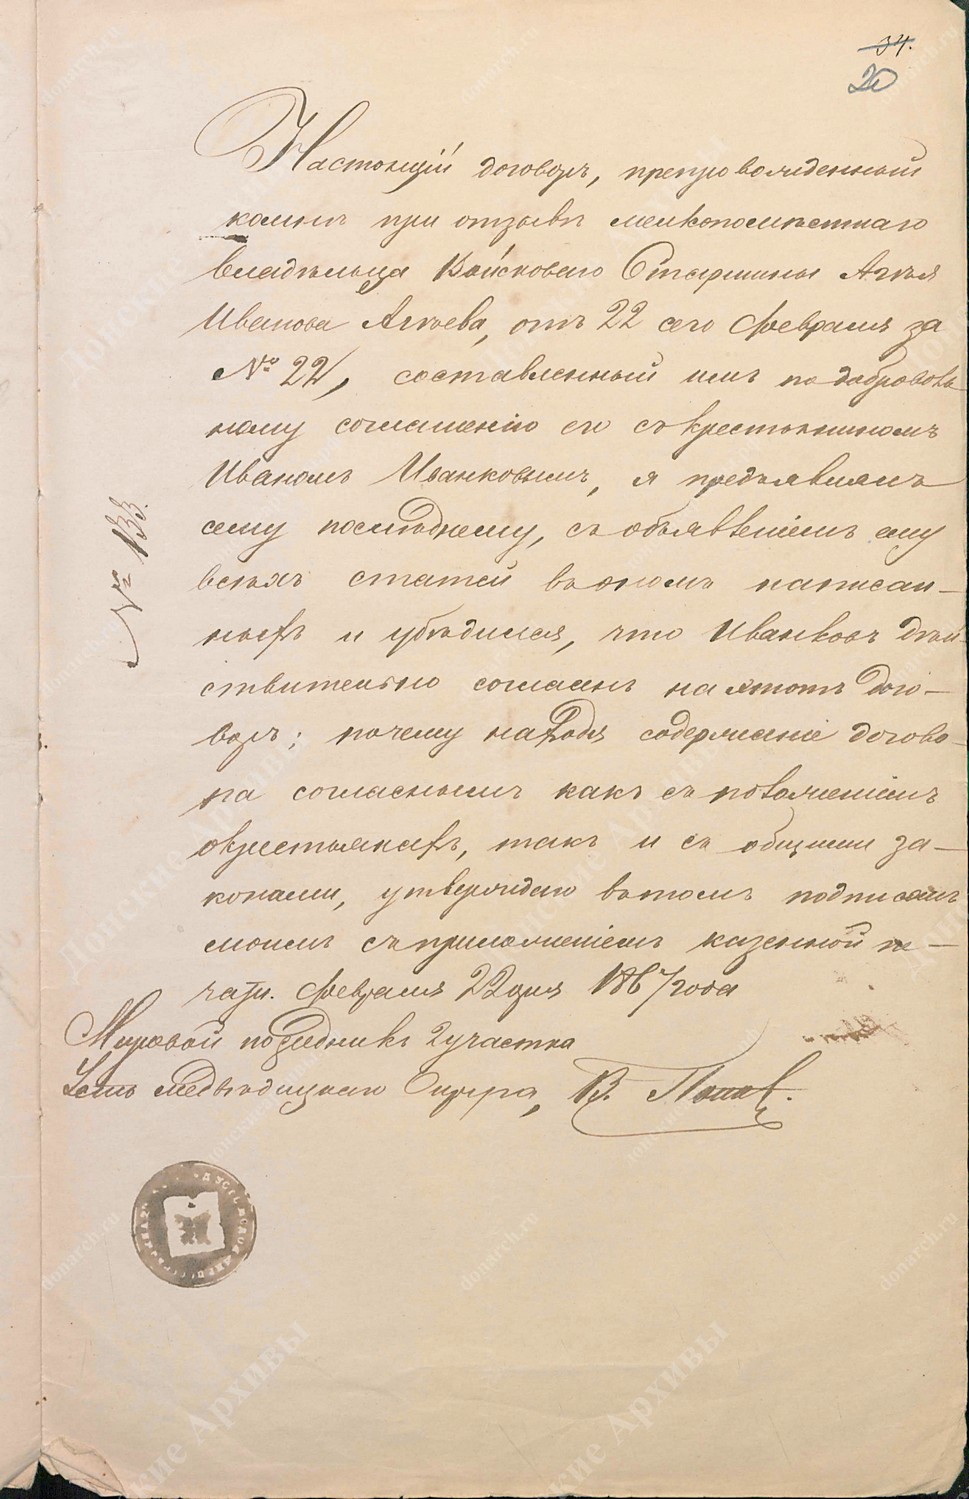 34.
20
Настоящій договоръ, препровожденный
комнѣ при отзывѣ мелкопомѣстнаго
владѣльца Войсковаго Старшины Агѣя
Иванова Агѣева, отъ 22 сего февраля за
№ 22, составленный имъ по доброволь
ному соглашенію его съ крестьяниномъ
Иваномъ Иванковымъ, я предъявлялъ
сему послѣднему, съ объявленіемъ ему
всѣхъ статей въ ономъ написан-
ныхъ и убѣдился, что Иванковъ дѣй
ствительно согласенъ на этотъ дого-
воръ; почему находя содержаніе догово-
ра согласнымъ какъ съ положеніемъ
окрестьянахъ, такъ и съ общими за-
конами, утверждаю въ томъ подписомъ
моимъ съ приложеніемъ казенной пе-
чати. Февраля 22 дня 1867 года
Мировой посредникъ 2 участка
Усть Медвѣдицкаго Округа, В. Поповъ.
№ 133